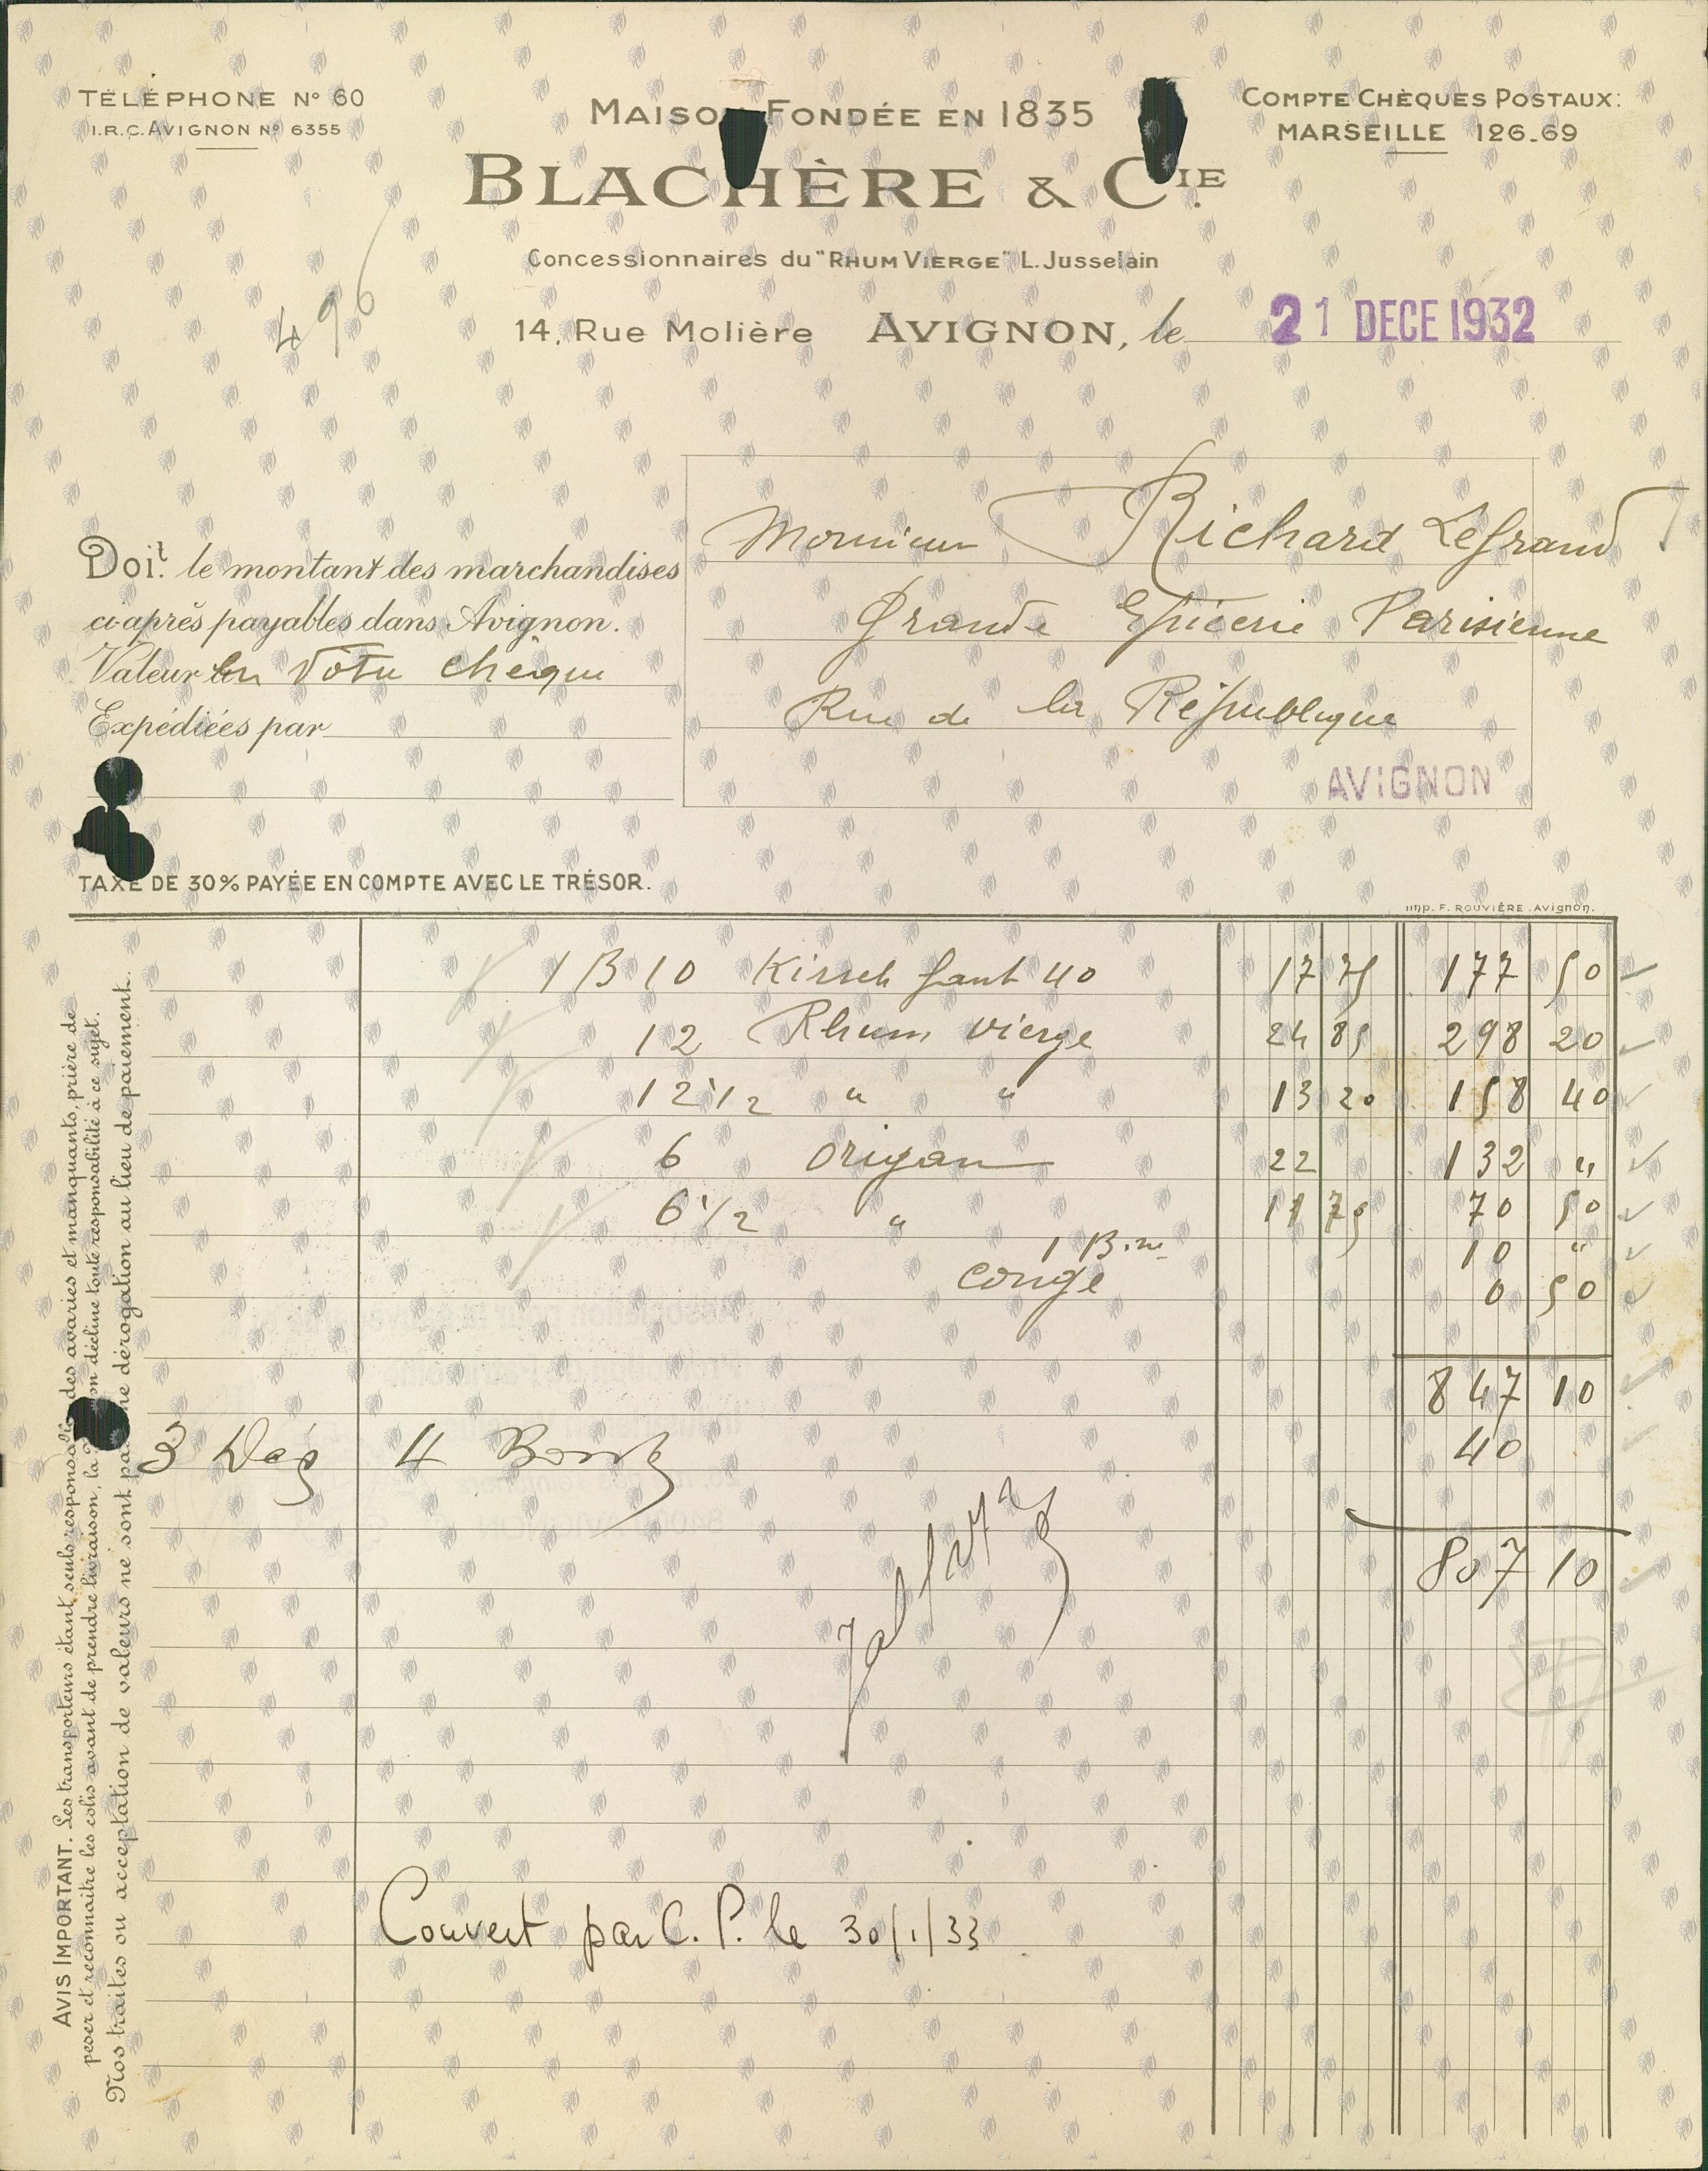 TÉLÉPHONE Nº 60
I.R.C. AVIGNON Nº 6355
MAISON FONDÉE EN 1835
COMPTE CHÈQUES POSTAUX:
MARSEILLE 126-69
BLACHÈRE & CIE
Concessionnaires du "RHUM VIERGE" L. Jusselain
496
14, Rue Molière AVIGNON, le 21 DECE 1932
Monsieur Richard Legrand
Grande Epicerie Parisienne
Rue de la République
AVIGNON
Doit le montant des marchandises
ci-après payables dans Avignon.
Valeur en Votre chèque
Expédiées par
TAXE DE 30% PAYÉE EN COMPTE AVEC LE TRÉSOR.
Imp. F. ROUVIÈRE. Avignon.
1 B 10 Kirsch fant 40 17 75 177 50
12 Rhum Vierge 24 85 298 20
12 1/2 " " 13 20 158 40
6 Origan 22 132 "
6 1/2 " 11 75 70 50
1 B. 10 "
congé 0 50
847 10
3 4 40
807 10
Couvert par C. P. le 30/1/33
AVIS IMPORTANT. Les transporteurs étant seuls responsables des avaries et manquants, prière de
peser et reconnaître les colis avant de prendre livraison, la décline toute responsabilité à ce sujet.
Nos traites ou acceptation de valeurs ne sont pas une dérogation au lieu de paiement.